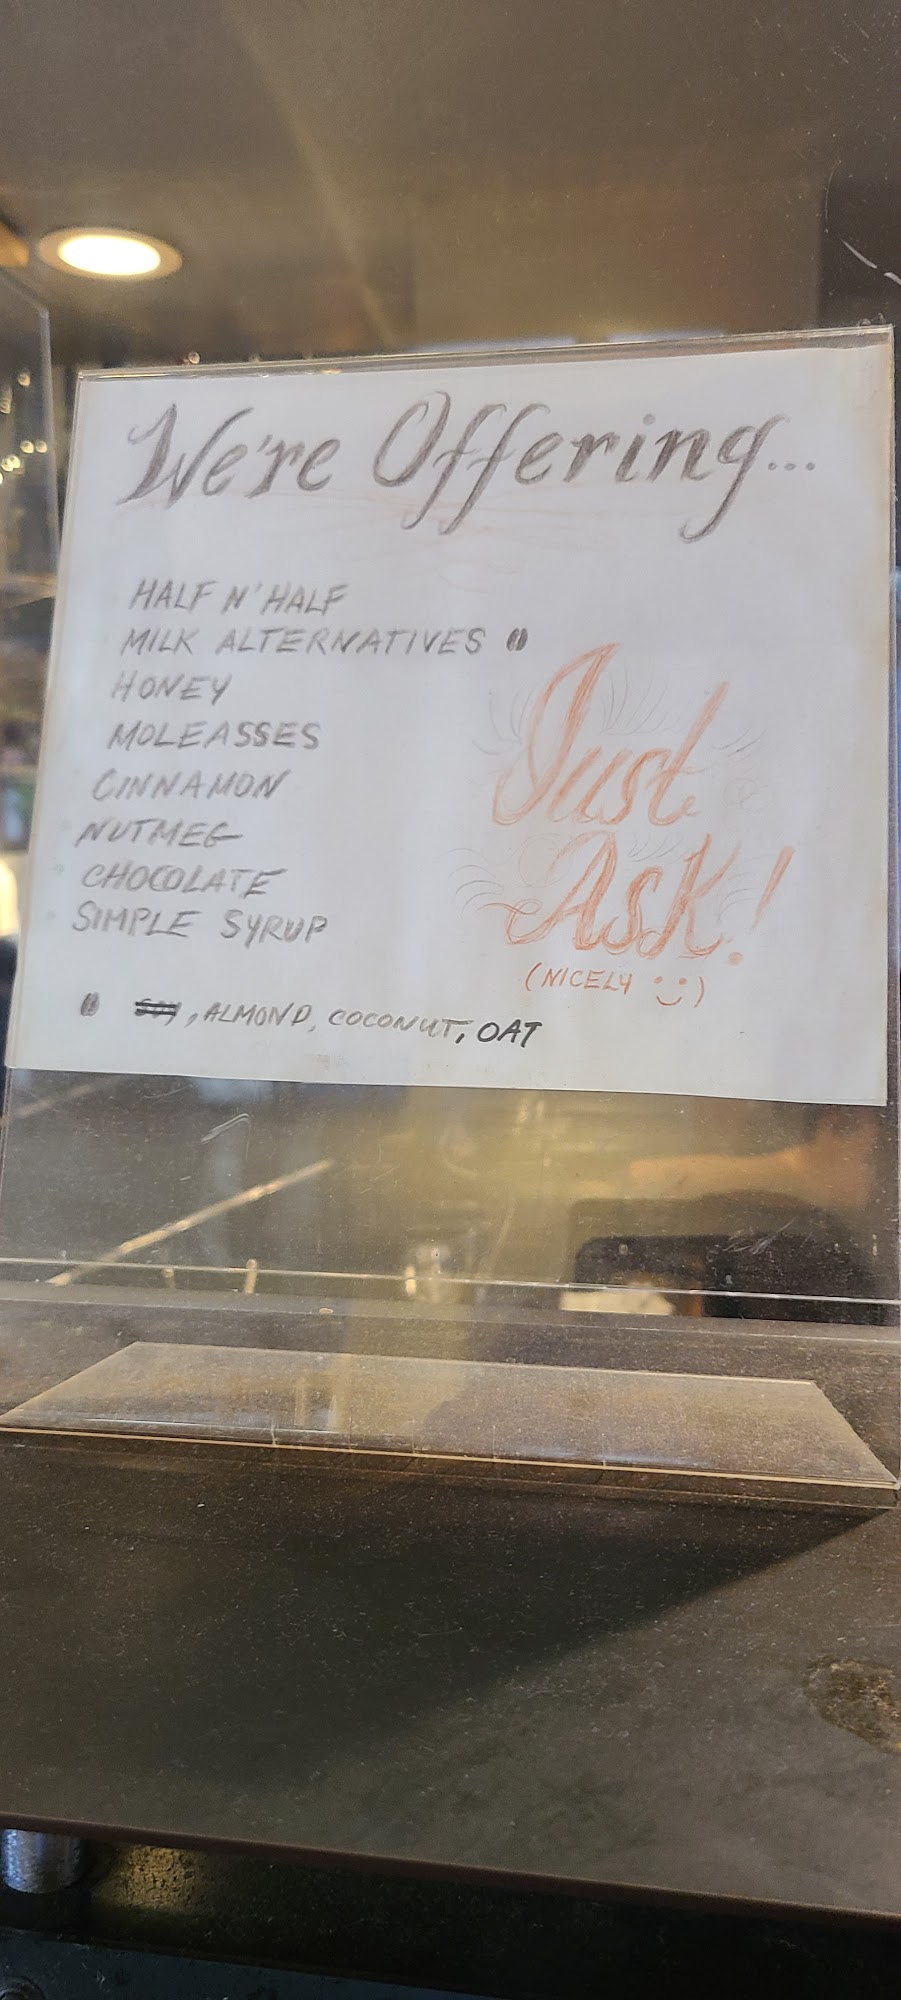 We're Offering...
HALF N' HALF
MILK ALTERNATIVES
HONEY
MOLEASSES
CINNAMON
NUTMEG
CHOCOLATE
SIMPLE SYRUP
Just
Ask!
(NICELY :))
SOY, ALMOND, COCONUT, OAT